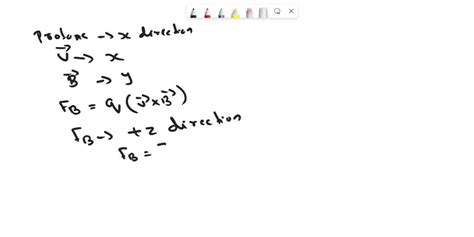 Protons → x direction
v⃗ → x
B⃗ → y
F_B = q(v⃗ × B⃗)
F_B → +z direction
F_B = -